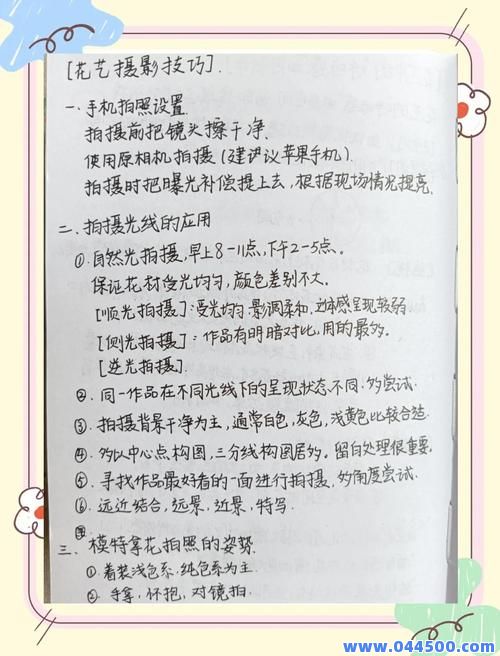 [花艺摄影技巧].
一、手机拍照设置
拍摄前把镜头擦干净.
使用原相机拍摄(建议苹果手机).
拍摄时把曝光补偿提上去,根据现场情况提亮.
二、拍摄光线的应用
①.自然光拍摄,早上8-11点,下午2-5点。
保证花材受光均匀,颜色差别不大。
[顺光拍摄]:受光均匀.影调柔和,立体感呈现较弱
[侧光拍摄]:作品有明暗对比,用的最多.
[逆光拍摄].
②.同一作品在不同光线下的呈现状态不同.多尝试.
③.拍摄背景干净为主,通常白色,灰色,浅黄色比较合适.
④.多以中心点构图,三分线构图居多。留白处理很重要.
⑤.寻找作品最好看的一面进行拍摄,多角度尝试.
⑥.远近结合,远景,近景,特写.
三、模特拿花拍照的姿势.
①.着装浅色系.纯色系为主.
②.手拿.怀抱,对镜拍.
www.044500.com